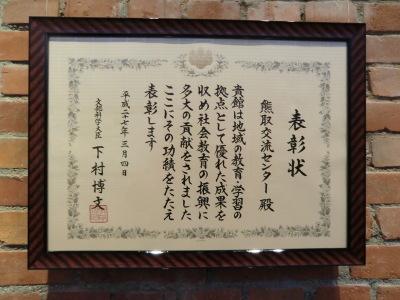 表彰状
熊取交流センター殿
貴館は地域の教育・学習の
拠点として優れた成果を
収め社会教育の振興に
多大の貢献をされました
ここにその功績をたたえ
表彰します
平成二十七年三月四日
文部科学大臣 下村博文